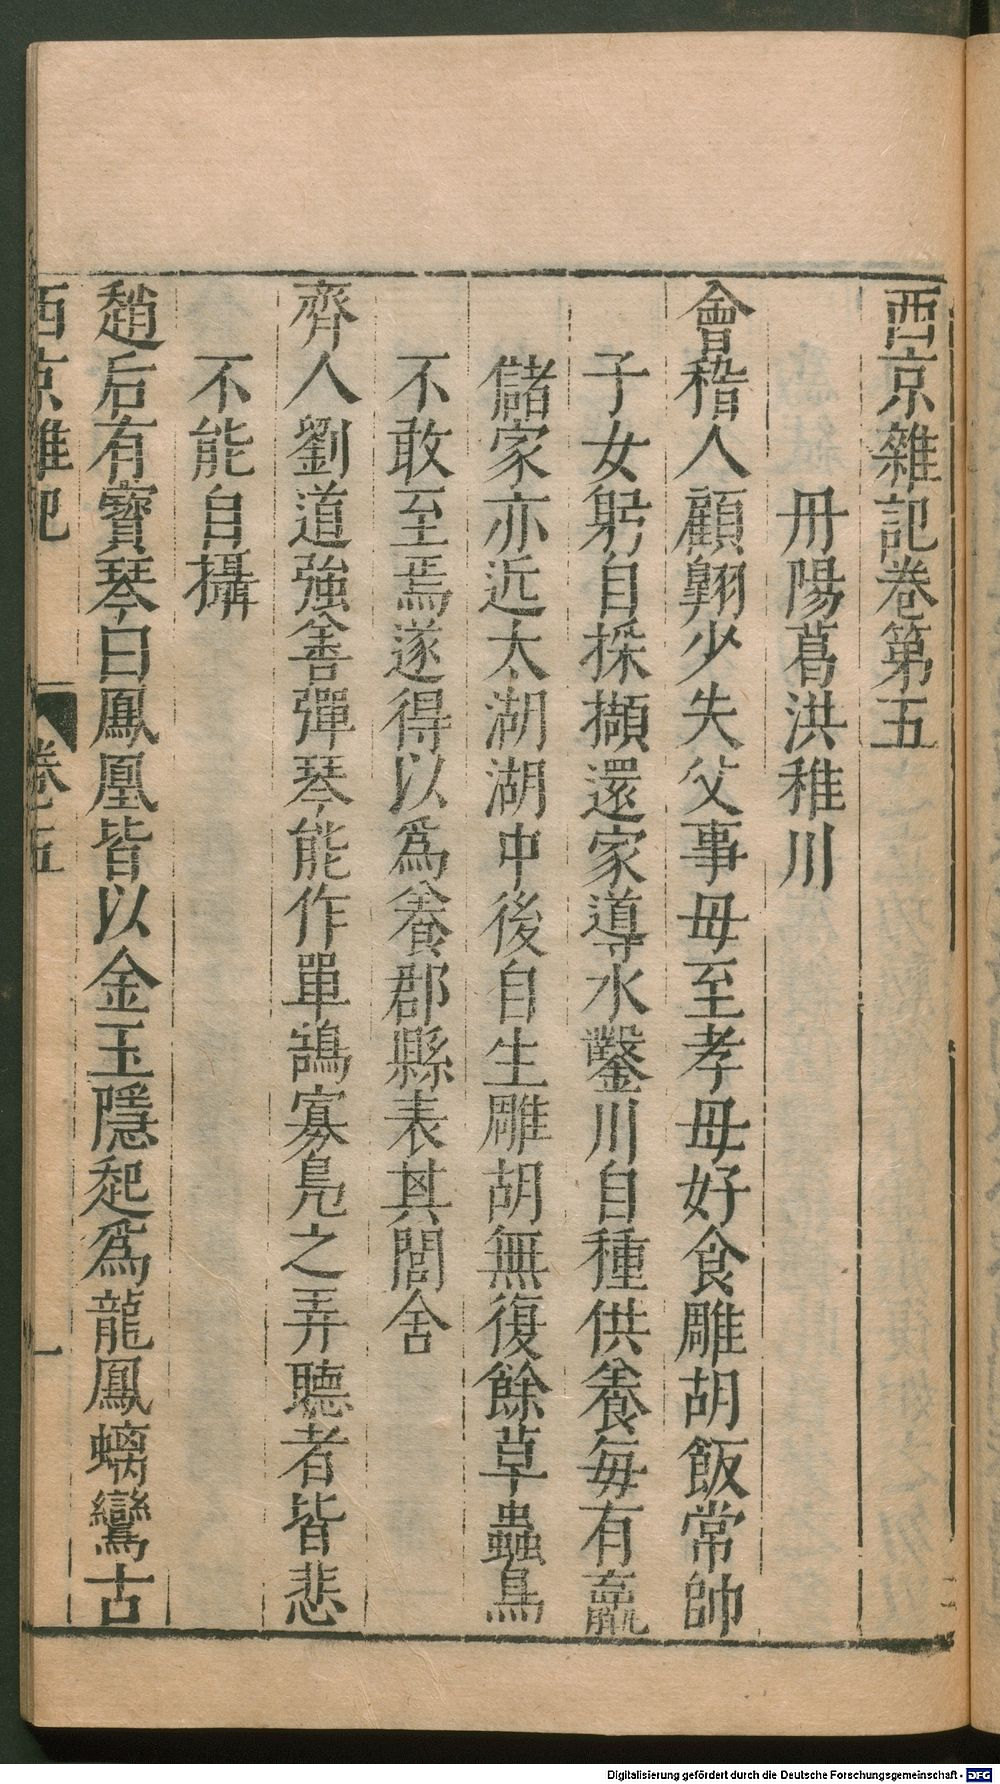 西京雜記卷第五
丹陽葛洪稚川
會稽人顧翺少失父事母至孝母好食雕胡飯常帥
子女躬自採擷還家導水鑿川自種供養每有贏
儲家亦近太湖湖中後自生雕胡無復餘草蟲鳥
不敢至焉遂得以爲養郡縣表其閭舍
齊人劉道強善彈琴能作單鵠寡鳧之弄聽者皆悲
不能自攝
趙后有寶琴曰鳳凰皆以金玉隱起爲龍鳳螭鸞古
西京雜記 卷五 一
Digitalisierung gefördert durch die Deutsche Forschungsgemeinschaft - DFG